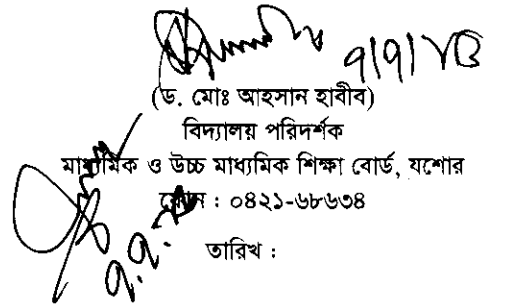 ৭/৭/১৩
(ড. মোঃ আহসান হাবীব)
বিদ্যালয় পরিদর্শক
মাধ্যমিক ও উচ্চ মাধ্যমিক শিক্ষা বোর্ড, যশোর
ফোন : ০৪২১-৬৮৬৩৪
তারিখ :